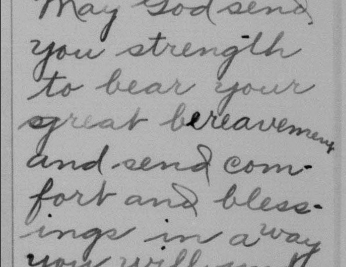 May God send
you strength
to bear your
great bereavement
and send com-
fort and bless-
ings in a way
you will